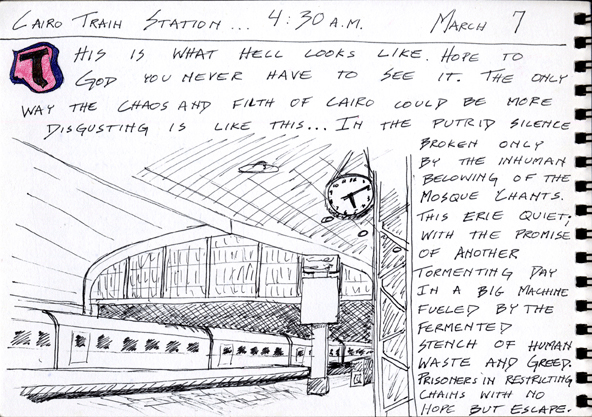 CAIRO TRAIN STATION... 4:30 A.M. MARCH 7
THIS IS WHAT HELL LOOKS LIKE. HOPE TO
GOD YOU NEVER HAVE TO SEE IT. THE ONLY
WAY THE CHAOS AND FILTH OF CAIRO COULD BE MORE
DISGUSTING IS LIKE THIS... IN THE PUTRID SILENCE
BROKEN ONLY
BY THE INHUMAN
BELOWING OF THE
MOSQUE CHANTS.
THIS ERIE QUIET;
WITH THE PROMISE
OF ANOTHER
TORMENTING DAY
IN A BIG MACHINE
FUELED BY THE
FERMENTED
STENCH OF HUMAN
WASTE AND GREED.
PRISONERS IN RESTRICTING
CHAINS WITH NO
HOPE BUT ESCAPE.